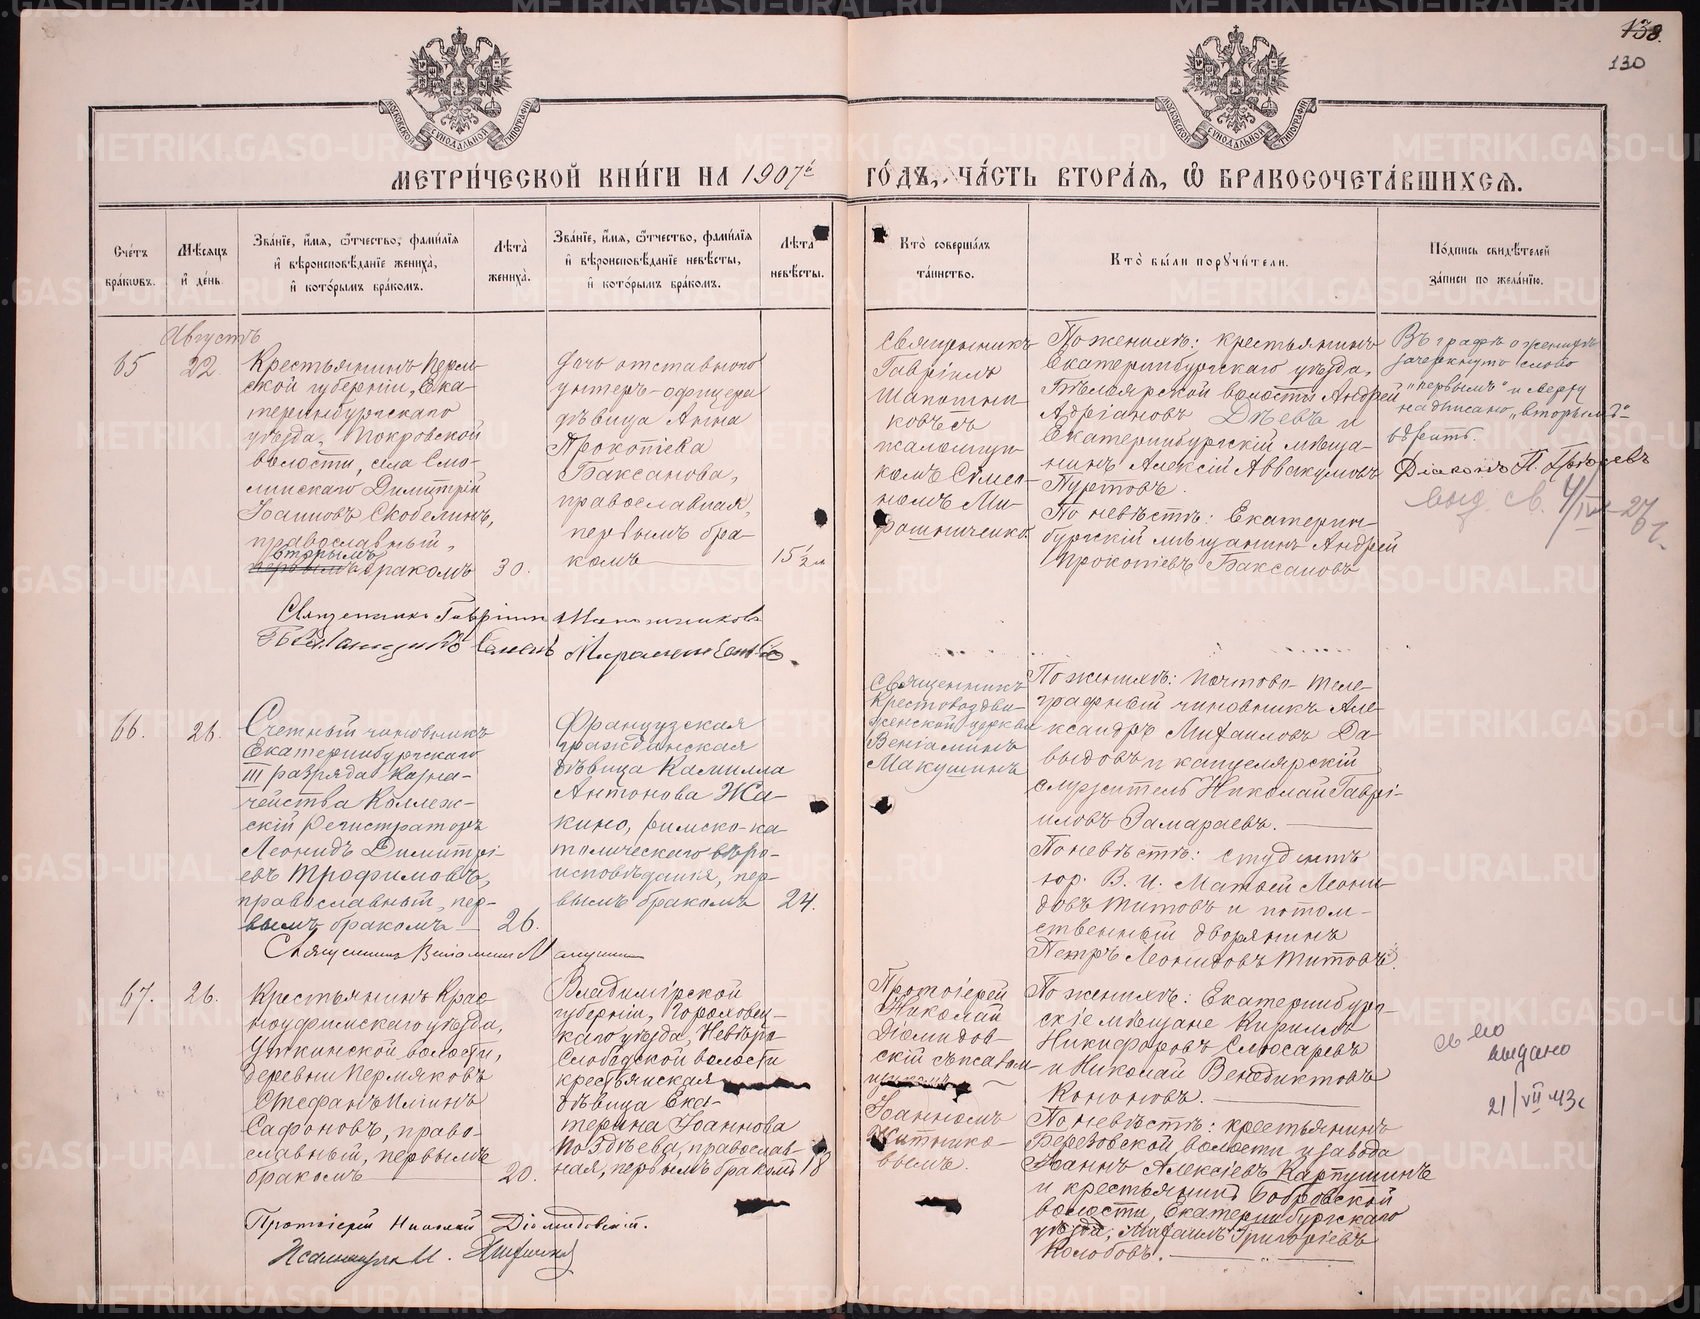 138.
130
МЕТРИ́ЧЕСКОЙ КНИ́ГИ НА 1907й ГО́ДЪ, ЧА́СТЬ ВТОРА́Я, Ѡ БРАКОСОЧЕТА́ВШИХСЯ.
Сче́тъ бра́кѡвъ.
Мѣ́сяцъ и҆ де́нь.
Зва́нїе, и҆́мя, ѻ҆́тчество, фами́лїя
и҆ вѣроисповѣ́данїе жениха̀,
и҆ кото́рымъ бра́комъ.
Лѣта̀ жениха̀.
Зва́нїе, и҆́мя, ѻ҆́тчество, фами́лїя
и҆ вѣроисповѣ́данїе невѣ́сты,
и҆ кото́рымъ бра́комъ.
Лѣта̀ невѣ́сты.
Кто̀ соверша́лъ та́инство.
Кто̀ бы́ли порꙋчи́тели.
По́дпись свидѣ́телей за́писи по жела́нїю.
Августъ
65
22.
Крестьянинъ Перм-
ской губерніи, Ека-
теринбургскаго
уѣзда, Покровской
волости, села Смо-
линскаго Димитрій
Іоанновъ Скобелинъ,
православный,
вторымъ
первымъ бракомъ
30.
Дочь отставного
унтеръ-офицера
дѣвица Анна
Прокопіева
Баксанова,
православная,
первымъ бра-
комъ
15 ½ л
Священникъ
Гавріилъ
Шапошни-
ковъ съ
псаломщи-
комъ Симео-
номъ Ми-
рошниченко.
По женихѣ: крестьянинъ
Екатеринбургскаго уѣзда,
волости Андрей
Адріановъ Дѣевъ и
Екатеринбургскій мѣща-
нинъ Алексій Аввакумовъ
Пуртовъ.
По невѣстѣ: Екатерин-
бургскій мѣщанинъ Андрей
Прокопіевъ Баксановъ
Въ графѣ о женихѣ
зачеркнуто слово
„первымъ“ и сверху
надписано „вторымъ“
вѣрить.
Діаконъ П.
выд. св.
Священникъ Гавріилъ Шапошниковъ
Псаломщикъ Симеонъ Мирошниченко.
66.
26.
Счетный чиновникъ
Екатеринбургскаго
III разряда Казна-
чейства Коллеж-
скій Регистраторъ
Леонидъ Димитрі-
евъ Трофимовъ,
православный, пер-
вымъ бракомъ
26.
Французская
гражданская
дѣвица Камилла
Антонова Жа-
кино, римско-ка-
толическаго вѣро-
исповѣданія, пер-
вымъ бракомъ
24.
Священникъ
Крестовоздви-
женской церкви
Веніаминъ
Макушинъ
По женихѣ: почтово-теле-
графный чиновникъ Але-
ксандръ Михаиловъ Да-
выдовъ и канцелярскій
служитель Николай Гаврі-
иловъ Замараевъ.
По невѣстѣ: студентъ
юр. В. И. Матвей Леони-
довъ Титовъ и потом-
ственный дворянинъ
Петръ Леонидовъ Титовъ.
Священникъ Веніаминъ Макушинъ
67.
26.
Крестьянинъ Крас-
ноуфимскаго уѣзда,
Уткинской волости,
деревни Пермяковъ
Стефанъ Иліинъ
Сафоновъ, право-
славный, первымъ
бракомъ
20.
Владимірской
губерніи, Гороховец-
каго уѣзда,
Слободской волости
крестьянская
дѣвица Ека-
терина Іоаннова
Поздѣева, православ-
ная, первымъ бракомъ
18
Протоіерей
Николай
Діомидов-
скій съ псалом
щикомъ
Іоанномъ
Житнико-
вымъ.
По женихѣ: Екатеринбург-
скіе мѣщане Кириллъ
Никифоровъ Слюсаревъ
и Николай Венедиктовъ
Кононовъ.
По невѣстѣ: крестьянинъ
Березовской волости и завода
Іоаннъ Алексіевъ Карпушинъ
и крестьянинъ Бобровской
волости, Екатеринбургскаго
уѣзда, Михаилъ Григоріевъ
Колобовъ.
св-во
выдано
21/VII 43г
Протоіерей Николай Діомидовскій.
Псаломщикъ И. Житниковъ
METRIKI.GASO-URAL.RU